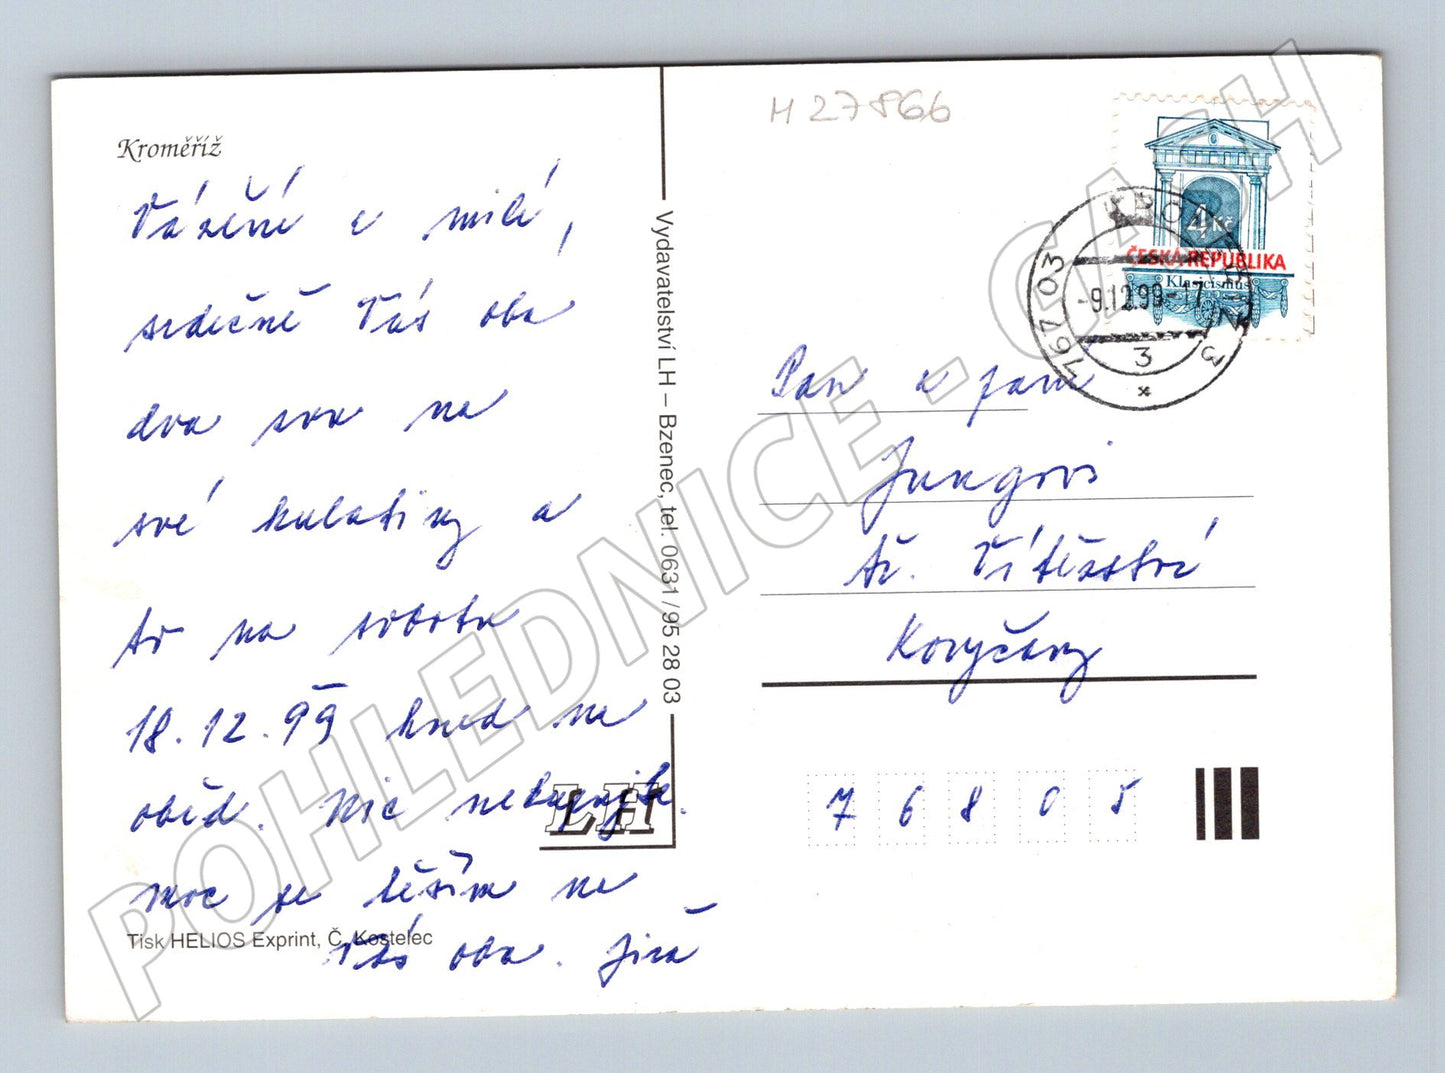 Kroměříž
Vážení a milí,
srdečně Vás oba
dva zvu na
své kulatiny a
to na sobotu
18.12.99 hned na
oběd. Nic nekupujte.
moc se těším na
Vás oba. Jiří
Tisk HELIOS Exprint, Č. Kostelec
Vydavatelství LH – Bzenec, tel. 0631 / 95 28 03
LH
H 27866
4 Kč
ČESKÁ REPUBLIKA
Klasicismus
767 03
-9.12.99-17
3
3
Pan a paní
Jungovi
tř. Vítězství
Koryčany
7 6 8 0 5
POHLEDNICE - CASH